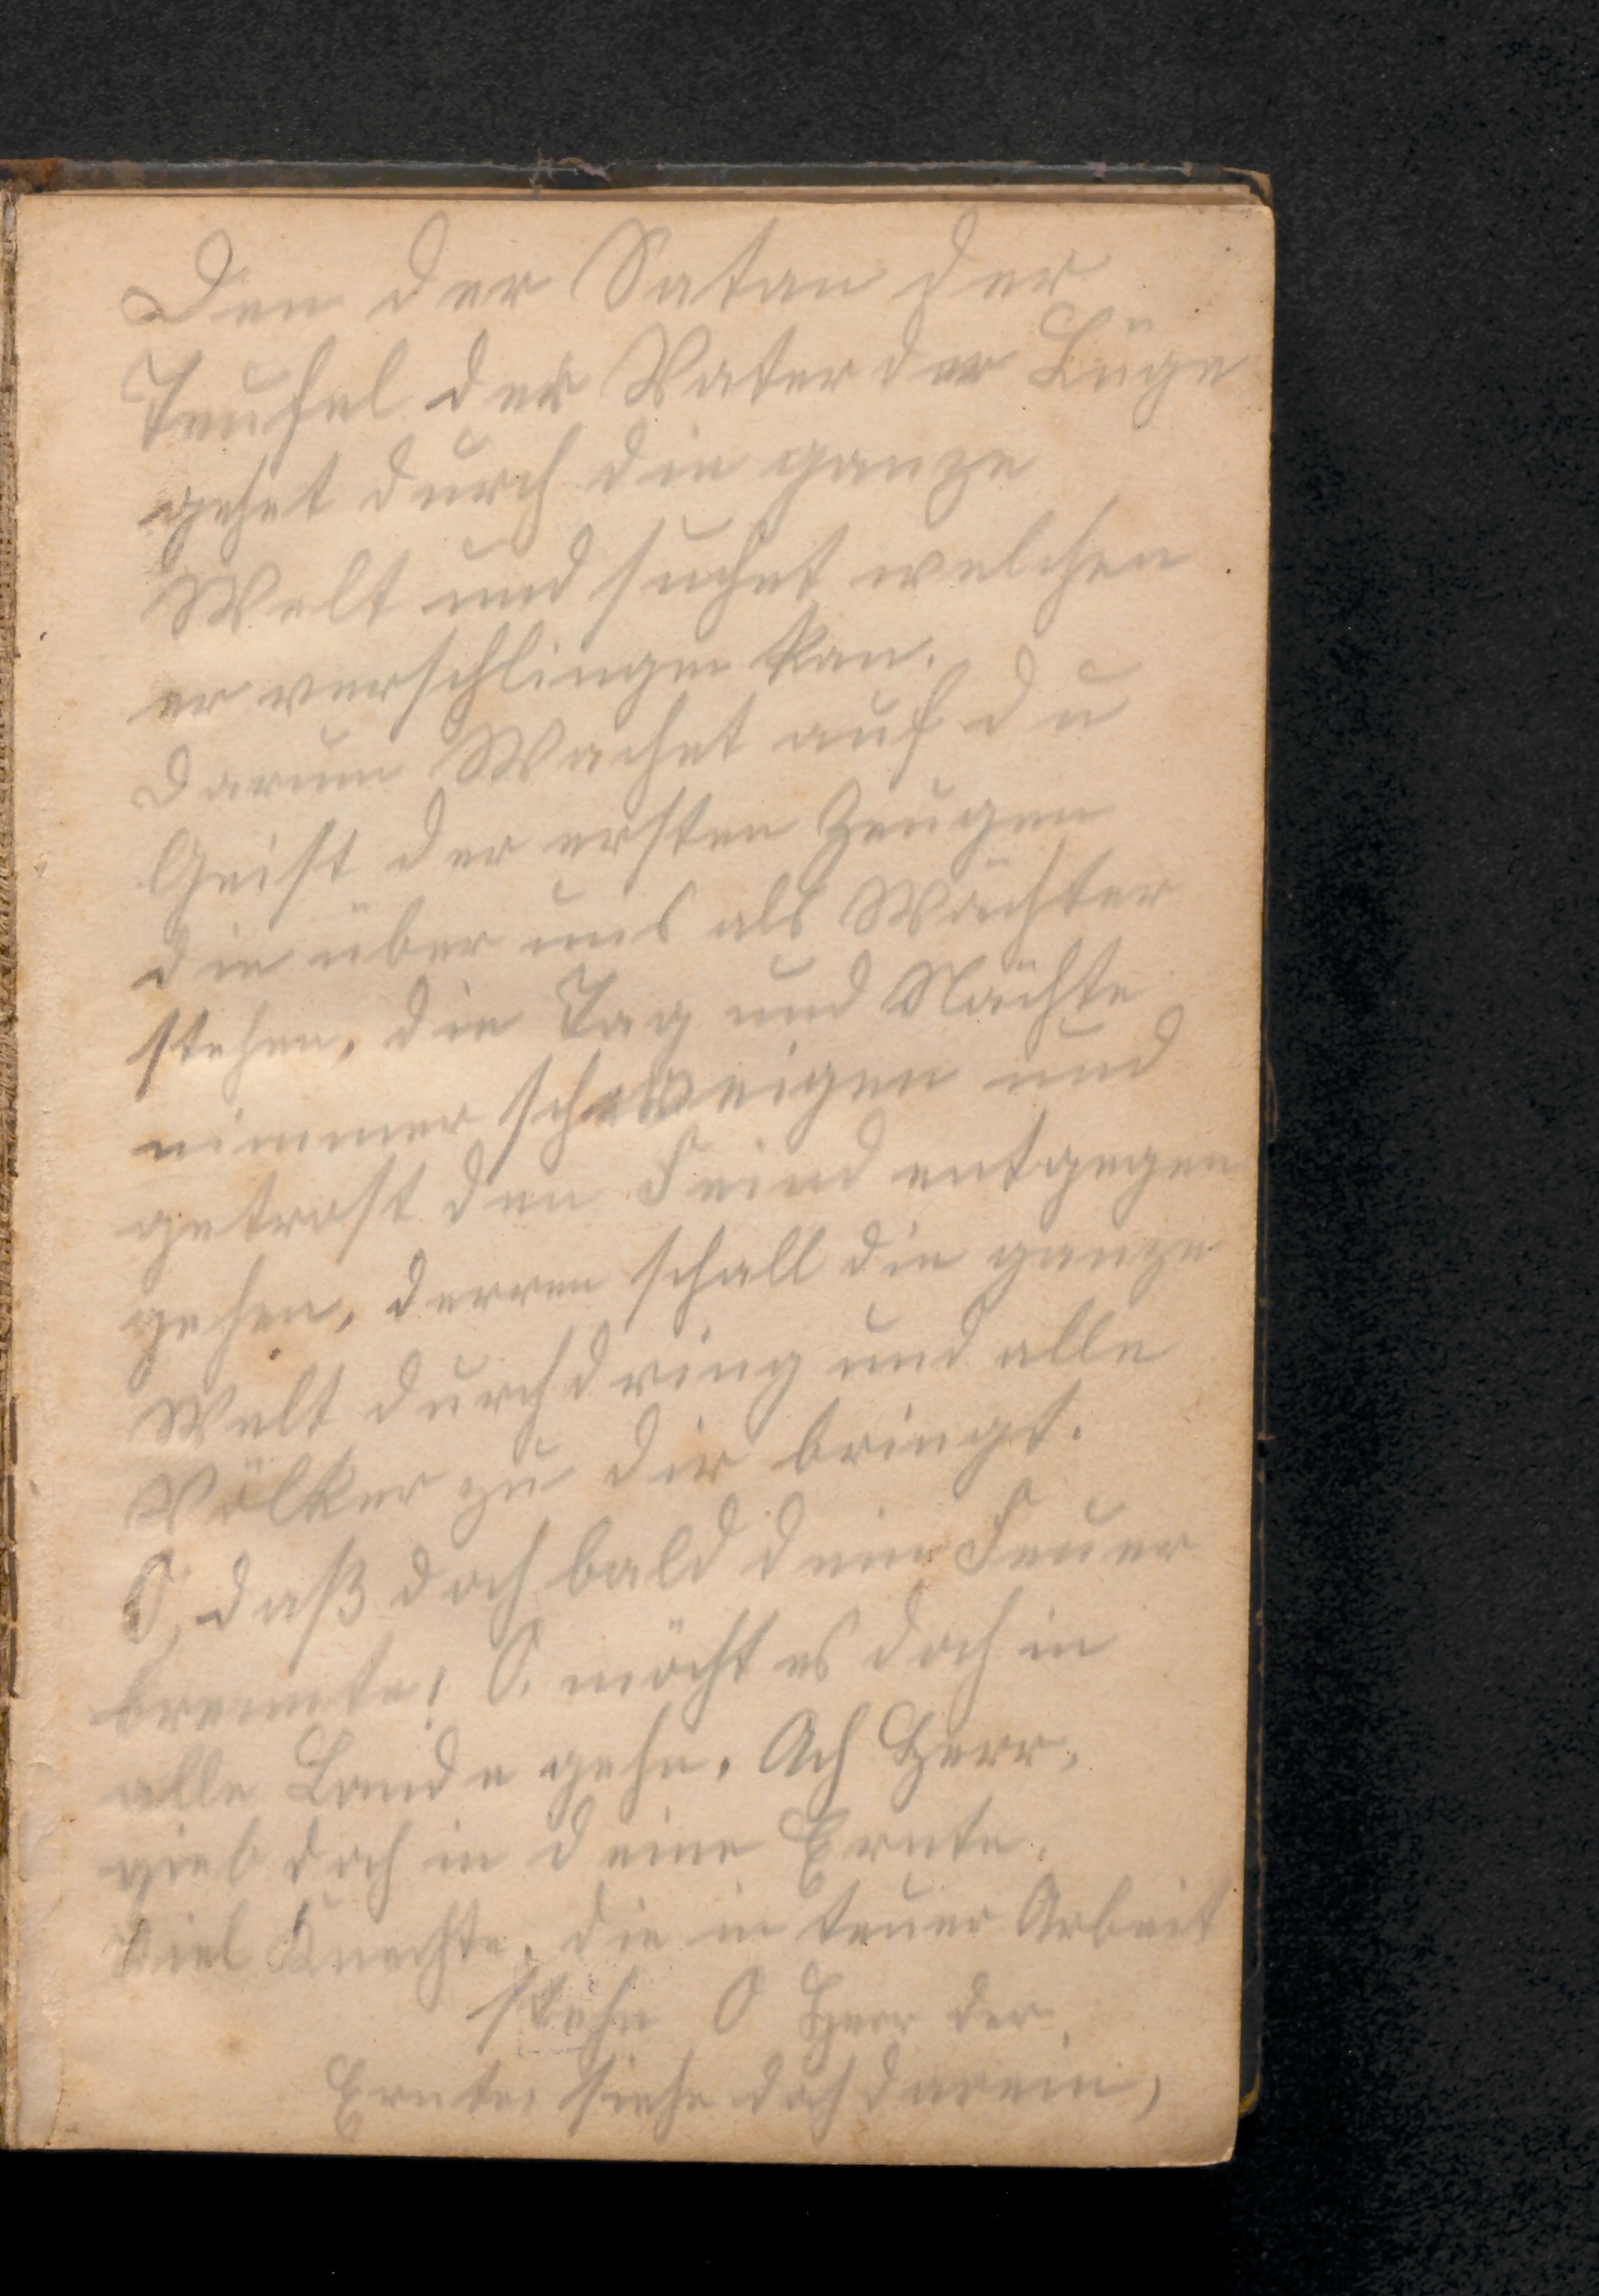 Den der Satan der
Teufel der Vater der Lüge
gehet durch die ganze
Welt und suchet welchen
er verschlingen kan.
Darum Wachet auf du
Geist der ersten Zeugen
die über uns als Wächter
stehen, die Tag und Nächte
nimmer schweigen und
getrost den Feind entgegen
gehen, derren schall die ganze
Welt durchdring und alle
Völker zu dir bringt.
O, daß doch bald dein Feuer
brennte! O. möcht es doch in
alle Lande gehn. Ach Herr,
gieb doch in deine Ernte,
Viel Knechte, die in teuer Arbeit
stehn O Herr der
Ernte, siehe doch darein,